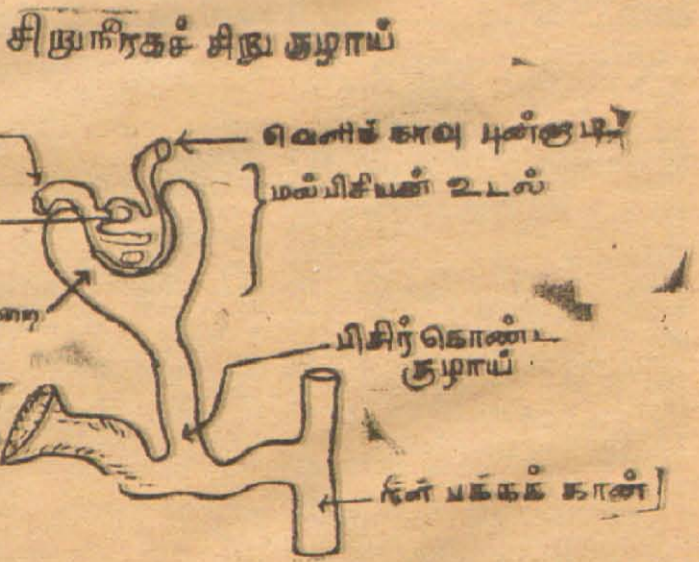 சிறுநீரகச் சிறு குழாய்
வெளிக் காவு புன்னாடி
மல்பிசியன் உடல்
றை
பிசிர் கொண்ட
குழாய்
நீள் பக்கக் கான்